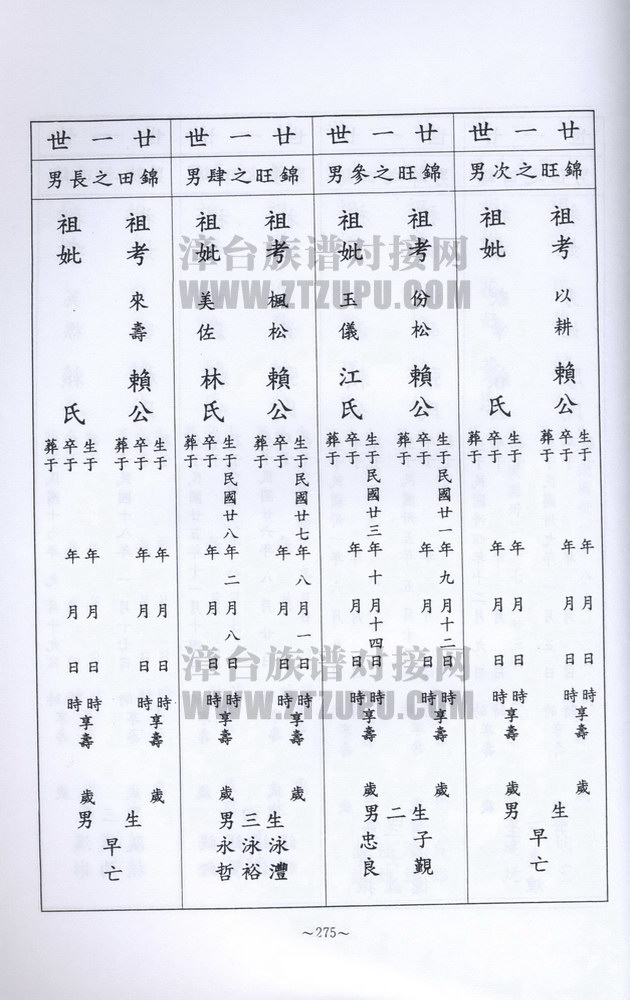 廿一世
錦旺之次男
祖考 以耕 賴公
生于 年 月 日 時
卒于 年 月 日 時 享壽 歲
葬于
祖妣 氏
生于 年 月 日 時
卒于 年 月 日 時 享壽 歲
葬于
生 男
早亡
廿一世
錦旺之參男
祖考 份松 賴公
生于民國廿一年九月十二日 時
卒于 年 月 日 時 享壽 歲
葬于
祖妣 玉儀 江氏
生于民國廿三年十月十四日 時
卒于 年 月 日 時 享壽 歲
葬于
生二男
子觀
忠良
廿一世
錦旺之肆男
祖考 楓松 賴公
生于民國廿七年八月一日 時
卒于 年 月 日 時 享壽 歲
葬于
祖妣 美佐 林氏
生于民國廿八年二月八日 時
卒于 年 月 日 時 享壽 歲
葬于
生三男
泳灃
泳裕
永哲
廿一世
錦田之長男
祖考 來壽 賴公
生于 年 月 日 時
卒于 年 月 日 時 享壽 歲
葬于
祖妣 氏
生于 年 月 日 時
卒于 年 月 日 時 享壽 歲
葬于
生 男
早亡
漳台族谱对接网
WWW.ZTZUPU.COM
漳台族谱对接网
WWW.ZTZUPU.COM
～275～